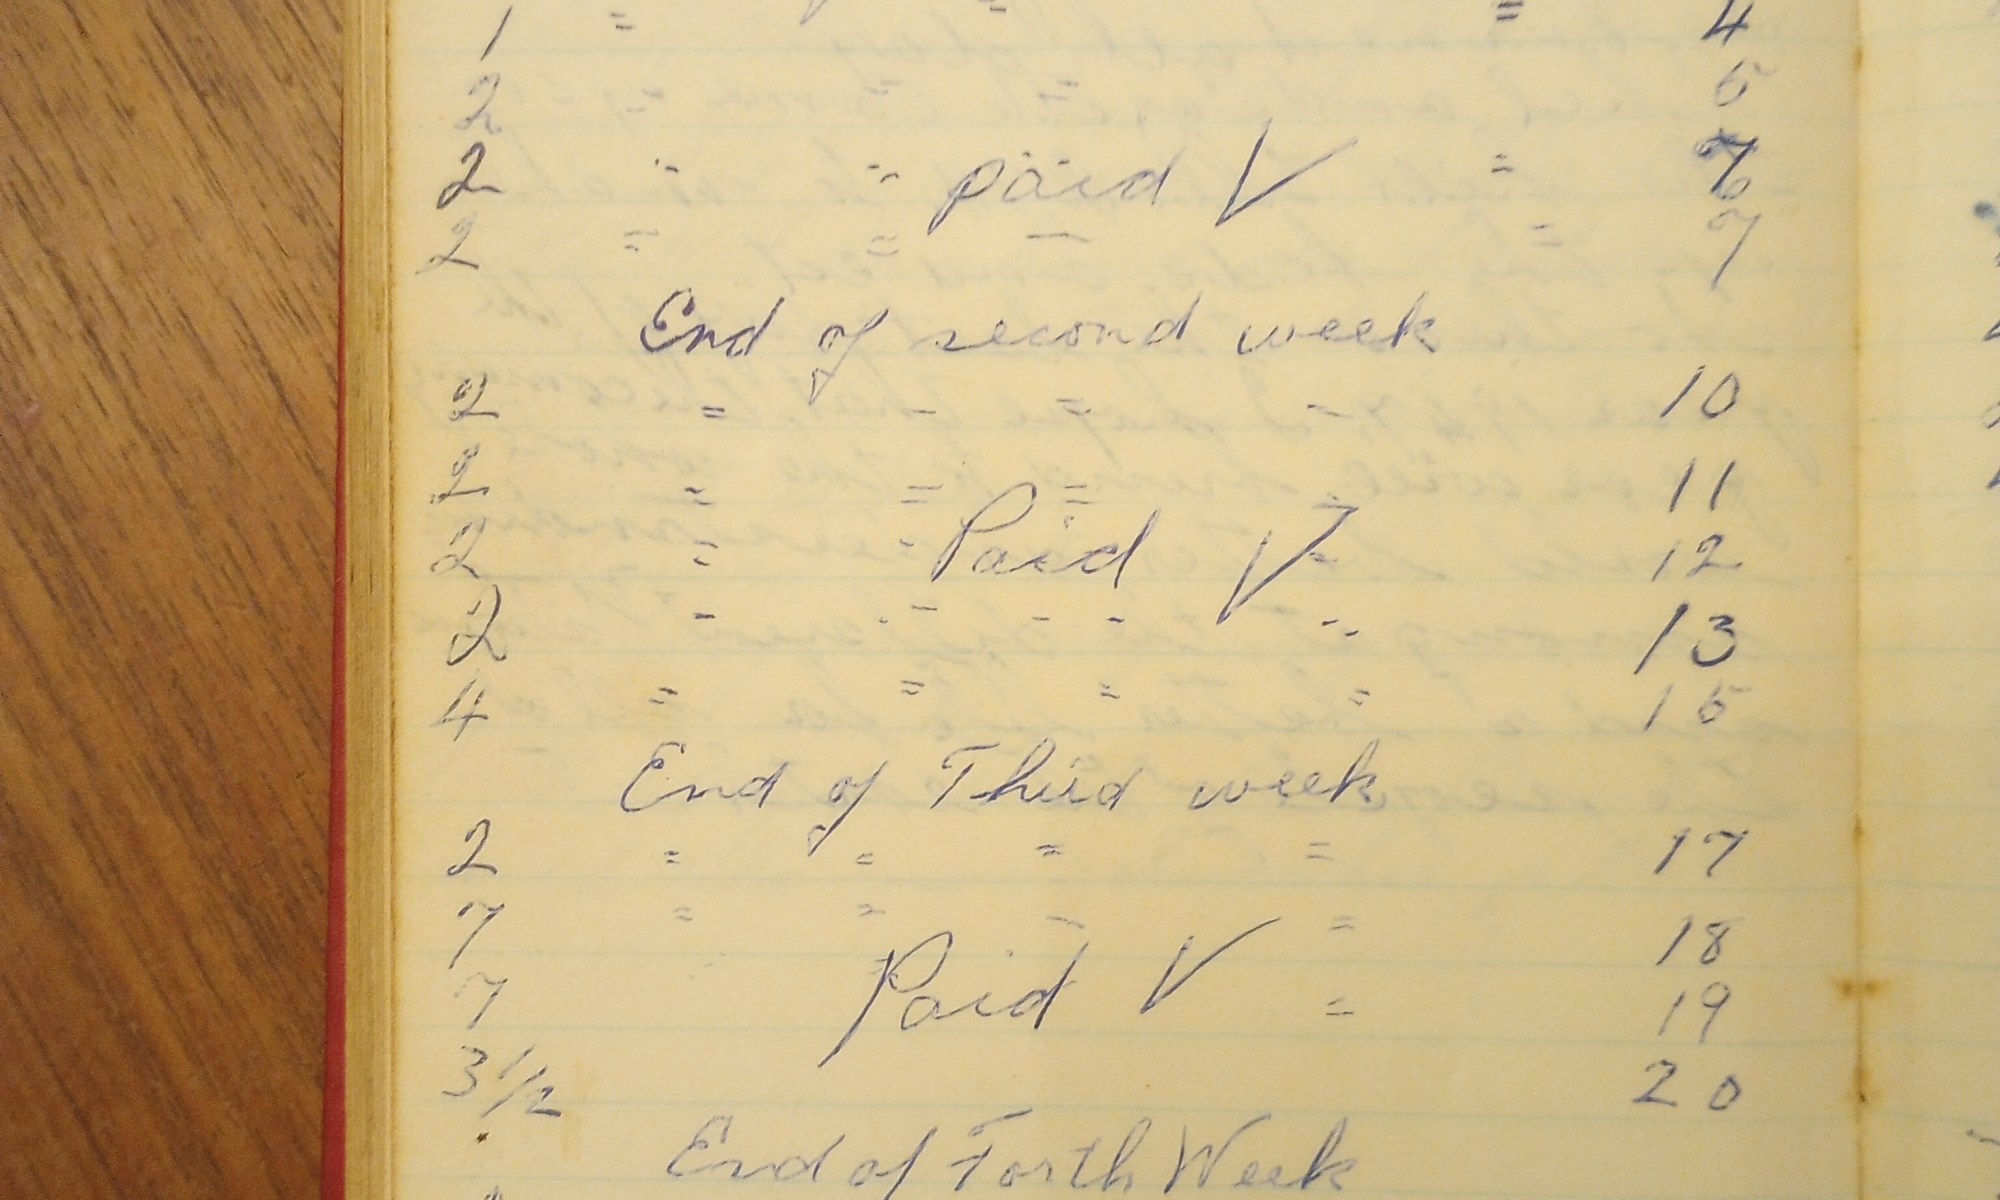 1 = = = 4
2 = = 5
2 " " paid V = 7
2 = = — = 7
End of second week
2 = - = - 10
2 = = = - 11
2 = - Paid V = 12
2 - " - - - " 13
4 = = = = 15
End of Third week
2 = = = = 17
7 = = - = 18
7 Paid V = 19
3 1/2 20
End of Forth Week